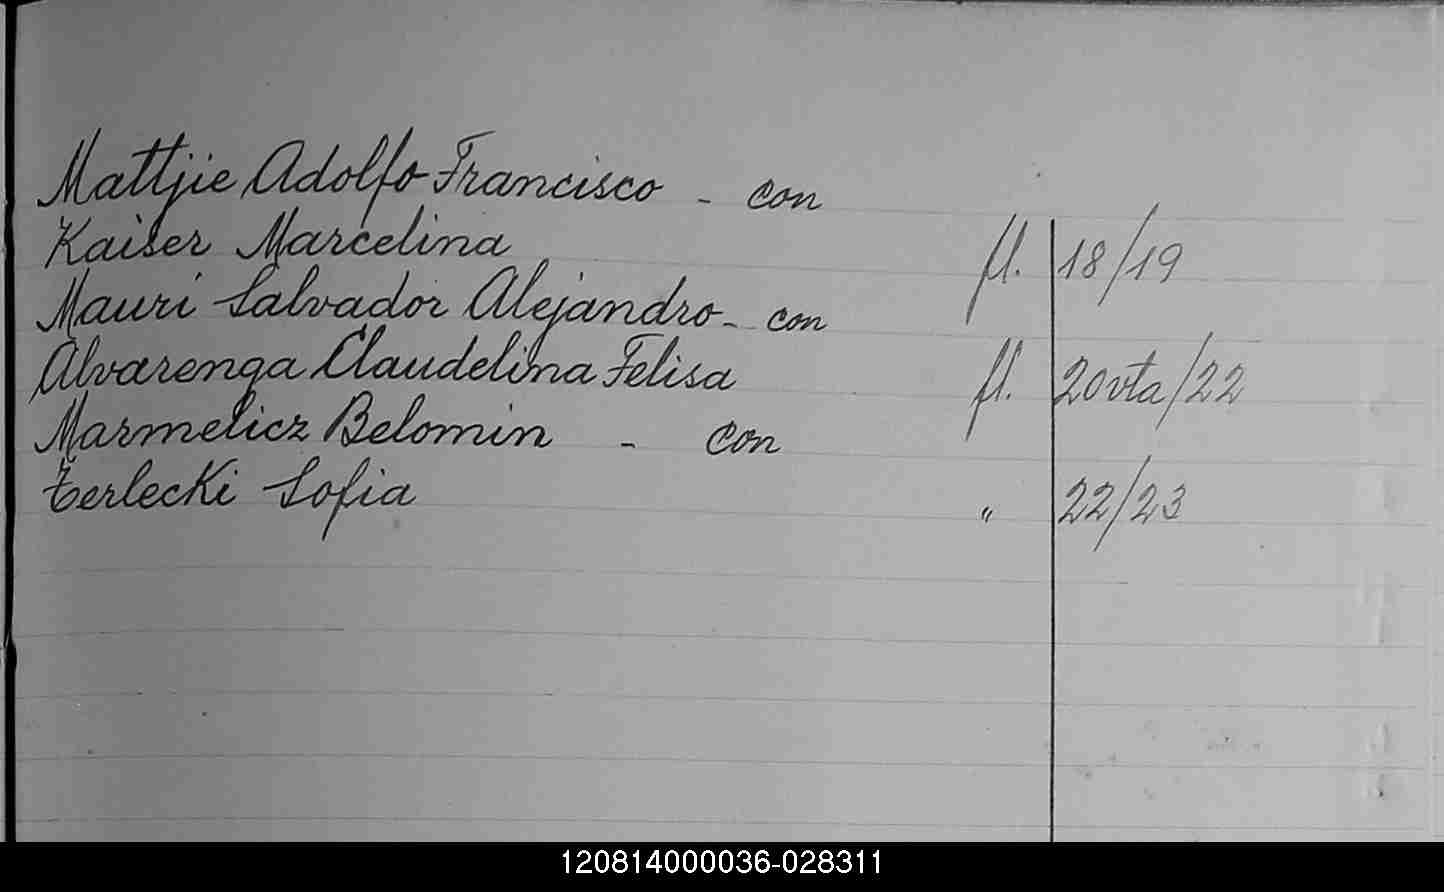 Mattjie Adolfo Francisco - con
Kaiser Marcelina fl. 18/19
Mauri Salvador Alejandro - con
Alvarenga Claudelina Felisa fl. 20vta/22
Marmelicz Belomin - con
Terlecki Sofia " 22/23
120814000036-028311